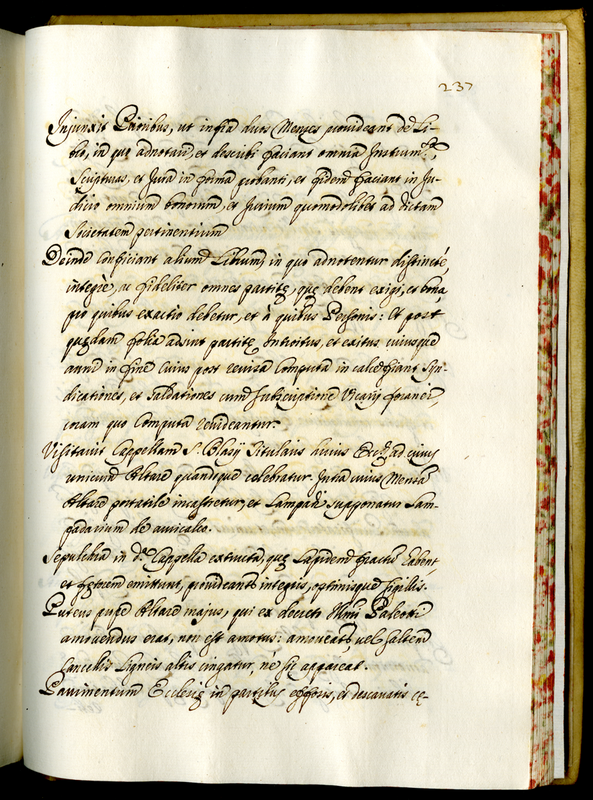 237
Injunxit Prioribus, ut infra duos Menses provideant de Li-
bro, in quo adnotari, et describi faciant omnia Instrum.ta,
Scripturas, et Jura in forma probanti, et fidem faciant in Ju-
dicio omnium bonorum, et Jurium quomodolibet ad dictam
Societatem pertinentium
Deinde Conficiant alium Librum, in quo adnotentur distincte,
integre, ac fideliter omnes partitę, quę debent exigi, et bona,
pro quibus exactio debetur, et à quibus Personis: Et post
quędam folia adsint partitę Introitus, et exitus cuiusque
anni in fine Cuius post revisa Computa in calce fiant Syn-
dicationes, et Saldationes cum subscriptione Vicarij foranei,
coram quo Computa revideantur.
Visitavit Cappellam S. Blasij Titularis huius Eccl.ę ad cuius
unicum Altare quandoque celebratur. Intra cuius Mensa
Altare portatile incastretur, et Lampadi supponatur Lam-
padarium de auricalco.
Sepulchra in d.a Cappella extructa, quę Lapidem fractum habent
et fętorem emittunt, provideantur integris, optimisque sigillis.
Puteus prope Altare majus, qui ex decreto Ill.mi Paleotti
amovendus erat, non est amotus: amoveatur, vel saltem
Cancellis Ligneis altis cingatur, nè sic appareat.
Pavimentum Ecclesię in partibus effossis, et descavatis cę-